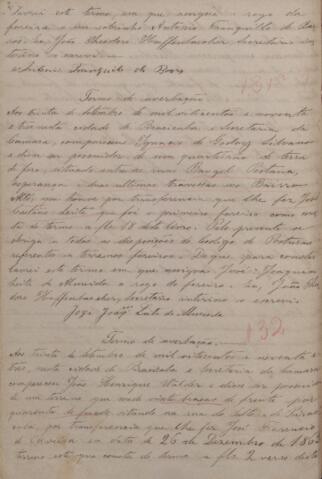 Lavrei este termo, em que assigna a rogo da
foreira seu sobrinho Antonio Tranquillo de Bar
ros. João Theodoro Haffenbaecher, Secretario in
terino o escrevi
Antonio Tranquillo de Barros
131
Termo de averbação
Aos trinta de Setembro de mil oitocentos e noventa
e tres nesta cidade de Piracicaba, e Secretaria da
Camara, compareceu Ignacio de Godoy Silvano
e disse ser possuidor de um quarteirão de terra
de foro, situado entre as ruas Rangel Pestana,
Esperança e duas ultimas travessas no Bairro
Alto, que houve por transferencia que lhe fez José
Caetano que foi o primeiro foreiro como
do termo a fls 18 deste livro. Pelo presente se
obriga a todas as disposições do Codigo de Posturas
referente a terrenos foreiros. Do que, para constar
lavrei este termo em que assigna José Joaquim
Leite de Almeida a rogo do foreiro. Eu, João Theo
doro Haffenbaecher, Secretario interino o escrevi
José Joaqm Leite de Almeida
132
Termo de averbação
Aos trinta de Setembro de mil oitocentos e noventa e
tres, nesta cidade de Piracicaba e Secretaria da Camara
compareceu João Henrique e disse ser possuidor
de um terreno que mede vinte braças de frente por
quarenta de fundo, situado na rua do
por transferencia que lhe fez José
em data de 26 de Dezembro de
terreno este que consta do termo a fls 2 verso deste